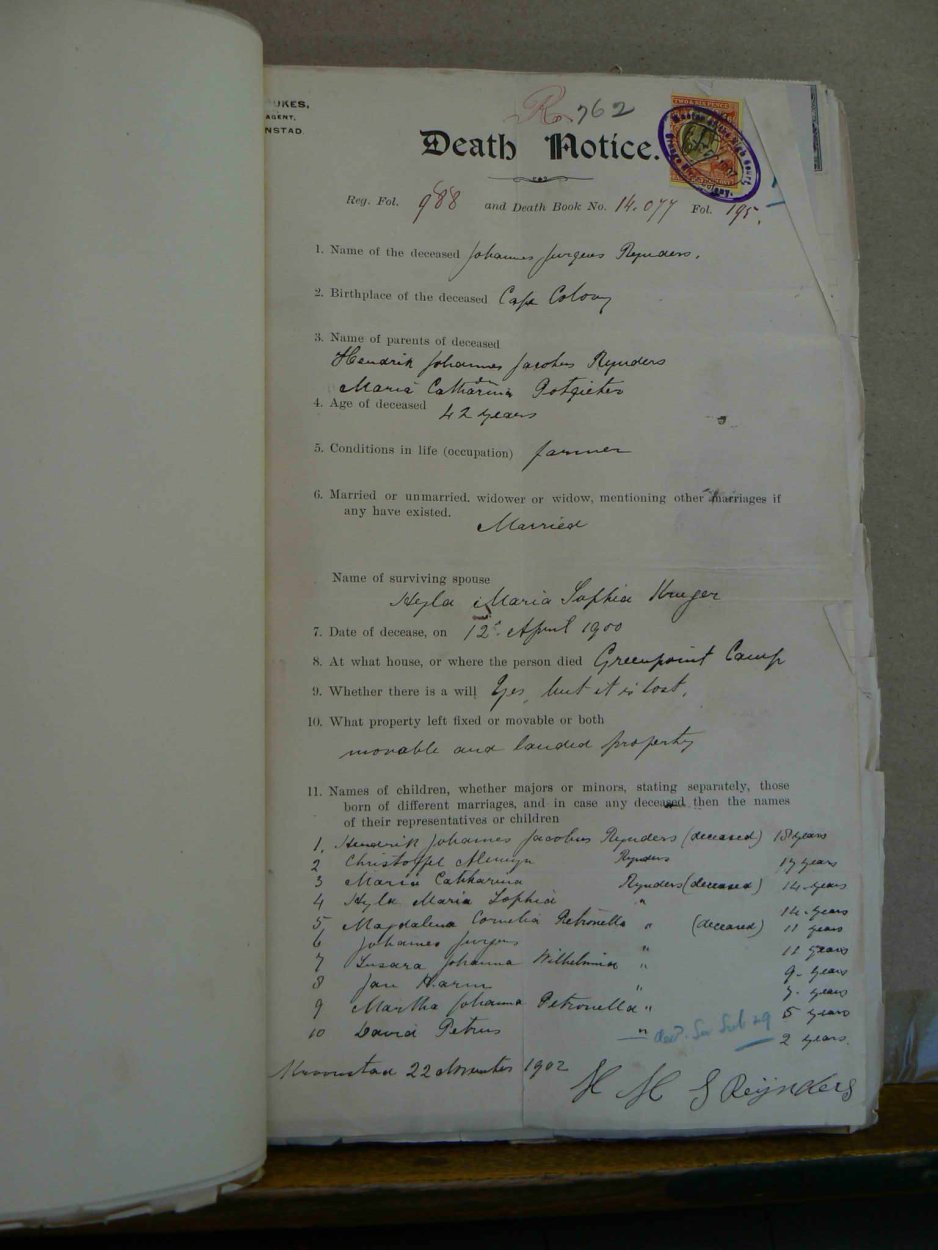 UKES,
AGENT,
NSTAD.
R 762
TWO & SIX PENCE
Master of the High Court,
Orange River Colony.
Death Notice.
Reg. Fol. 988 and Death Book No. 14.077 Fol. 195.
1. Name of the deceased Johannes Jurgens Rynders.
2. Birthplace of the deceased Cape Colony
3. Name of parents of deceased
Hendrik Johannes Jacobus Rynders
Maria Catharina Potgieter
4. Age of deceased 42 years
5. Conditions in life (occupation) farmer
6. Married or unmarried, widower or widow, mentioning other marriages if
any have existed.
Married
Name of surviving spouse
Hyla Maria Sophia Kruger
7. Date of decease, on 12 April 1900
8. At what house, or where the person died Greenpoint Camp
9. Whether there is a will Yes, but it is lost.
10. What property left fixed or movable or both
movable and landed property
11. Names of children, whether majors or minors, stating separately, those
born of different marriages, and in case any deceased then the names
of their representatives or children
1, Hendrik Johannes Jacobus Rynders (deceased) 18 years
2 Christoffel Alewyn Rynders 17 years
3 Maria Catharina Rynders (deceased) 14 years
4 Hyla Maria Sophia " 14 years
5 Magdalena Cornelia Petronella " (deceased) 11 years
6 Johannes Jurgens " 11 years
7 Susara Johanna Wilhelmina " 9 years
8 Jan Harm " 7 years
9 Martha Johanna Petronella " 5 years
10 David Petrus " 2 years.
Kroonstad 22 November 1902
H M S Reijnders